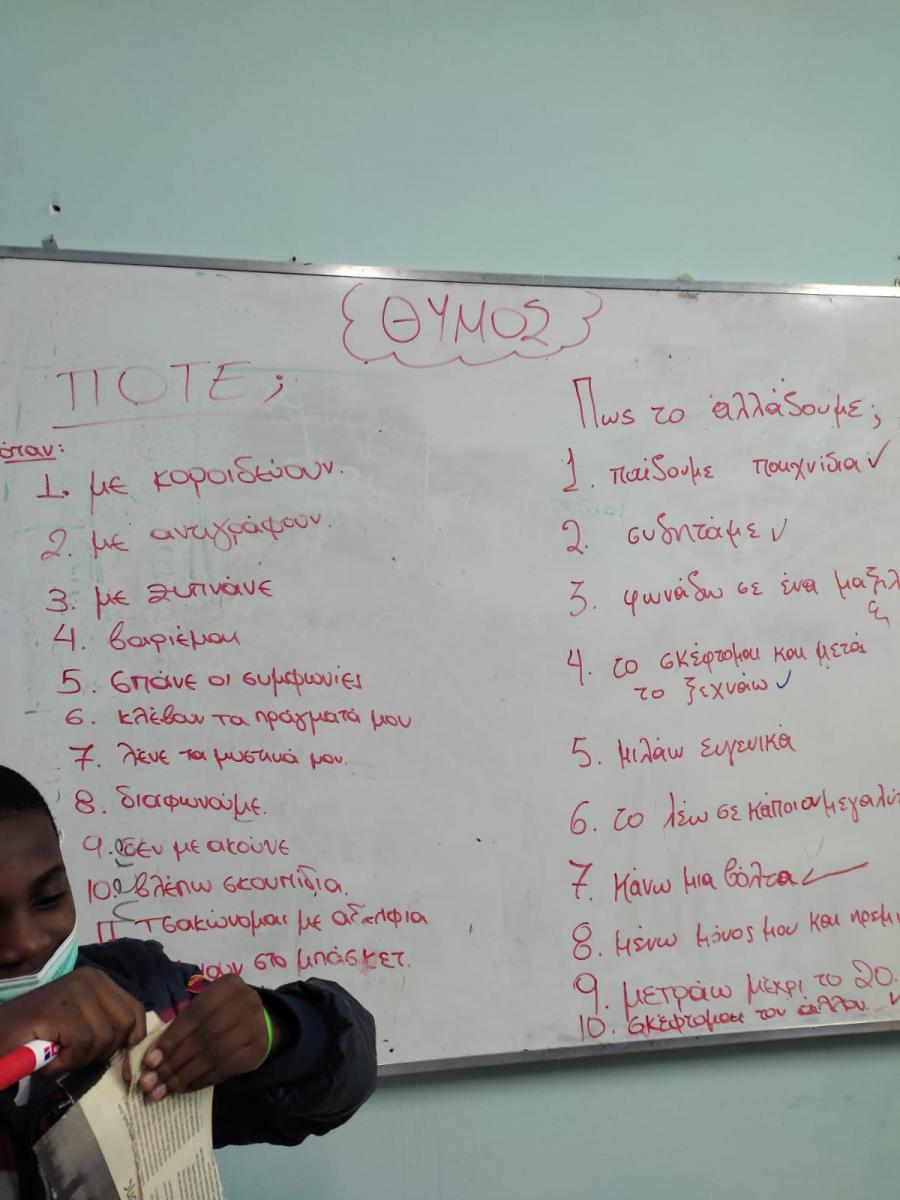 ΘΥΜΟΣ
ΠΟΤΕ;
όταν:
1. με κοροιδεύουν.
2. με αντιγράφουν.
3. με ξυπνάνε
4. βαριέμαι
5. σπάνε οι συμφωνίες
6. κλέβουν τα πράγματά μου
7. λένε τα μυστικά μου.
8. διαφωνούμε.
9. δεν με ακούνε
10. βλέπω σκουπίδια.
11 τσακώνομαι με αδέλφια
στο μπάσκετ.
Πως το αλλάζουμε;
1. παίζουμε παιχνίδια ✓
2. συζητάμε ✓
3. φωνάζω σε ένα
4. το σκέφτομαι και μετά
το ξεχνάω ✓
5. μιλάω ευγενικά
6. το λέω σε
7. κάνω μια βόλτα ✓
8. μένω μόνος μου και
9. μετράω μέχρι το 20.
10. σκέφτομαι τον άλλον. ✓